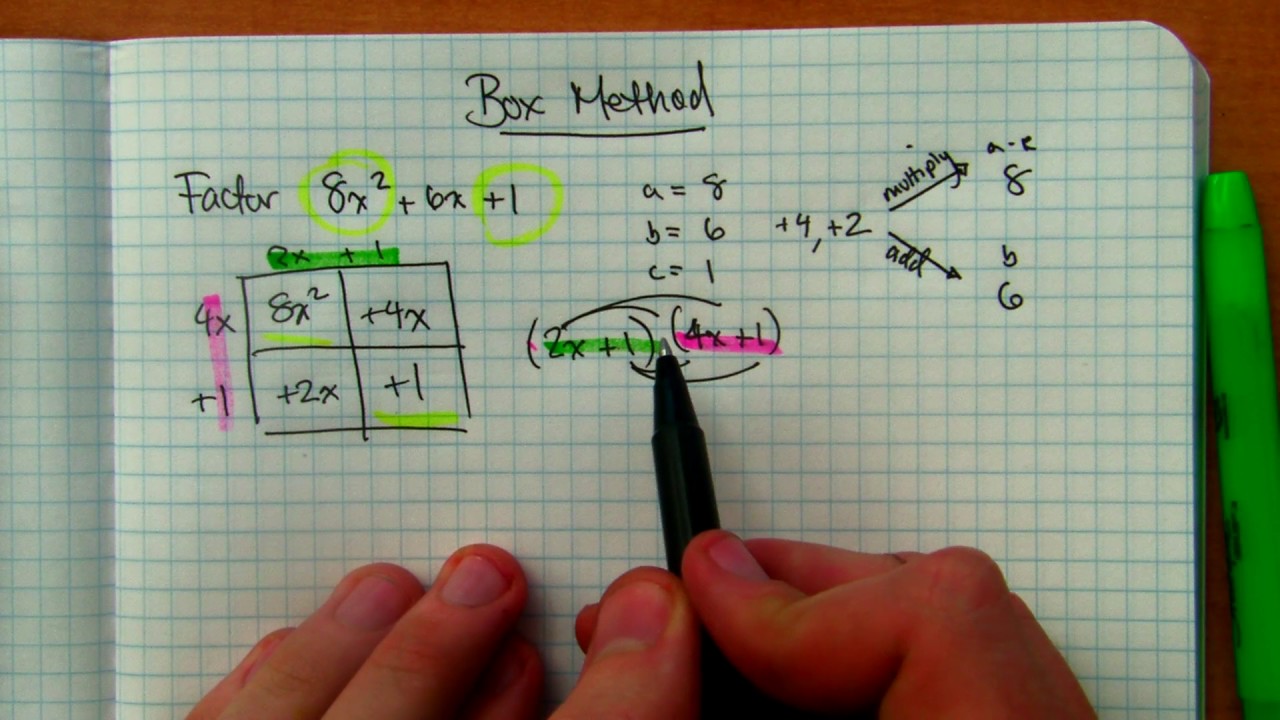 Box Method
Factor 8x² + 6x +1
a = 8
b = 6
c = 1
+4, +2
multiply
a·c
8
add
b
6
2x + 1
4x 8x² +4x
+1 +2x +1
(2x +1) (4x +1)